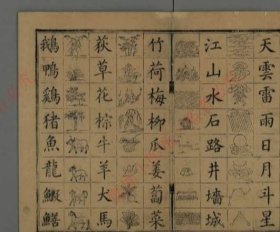 天雲雷雨日月斗星
江山水石路井墻城
竹荷梅柳瓜姜蔔菜
荻草花棕牛羊犬馬
鵝鴨鷄猪魚龍鱖鱔